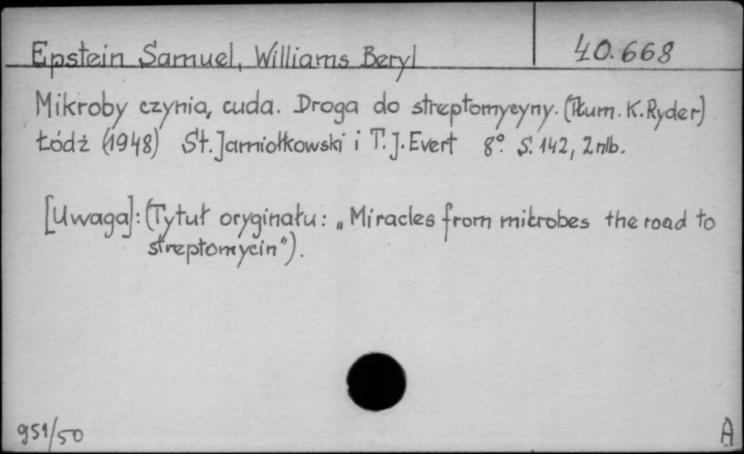 Epstein Samuel, Williams Beryl
40.668
Mikroby czynią cuda. Droga do streptomycyny. (Tłum. K. Ryder)
Łódź (1948) St. Jamiołkowski i T. J. Evert 8° S. 142, 2 nlb.
[Uwaga]: (Tytuł oryginału: „Miracles from mikrobes the road to
streptomycin").
951/50
A